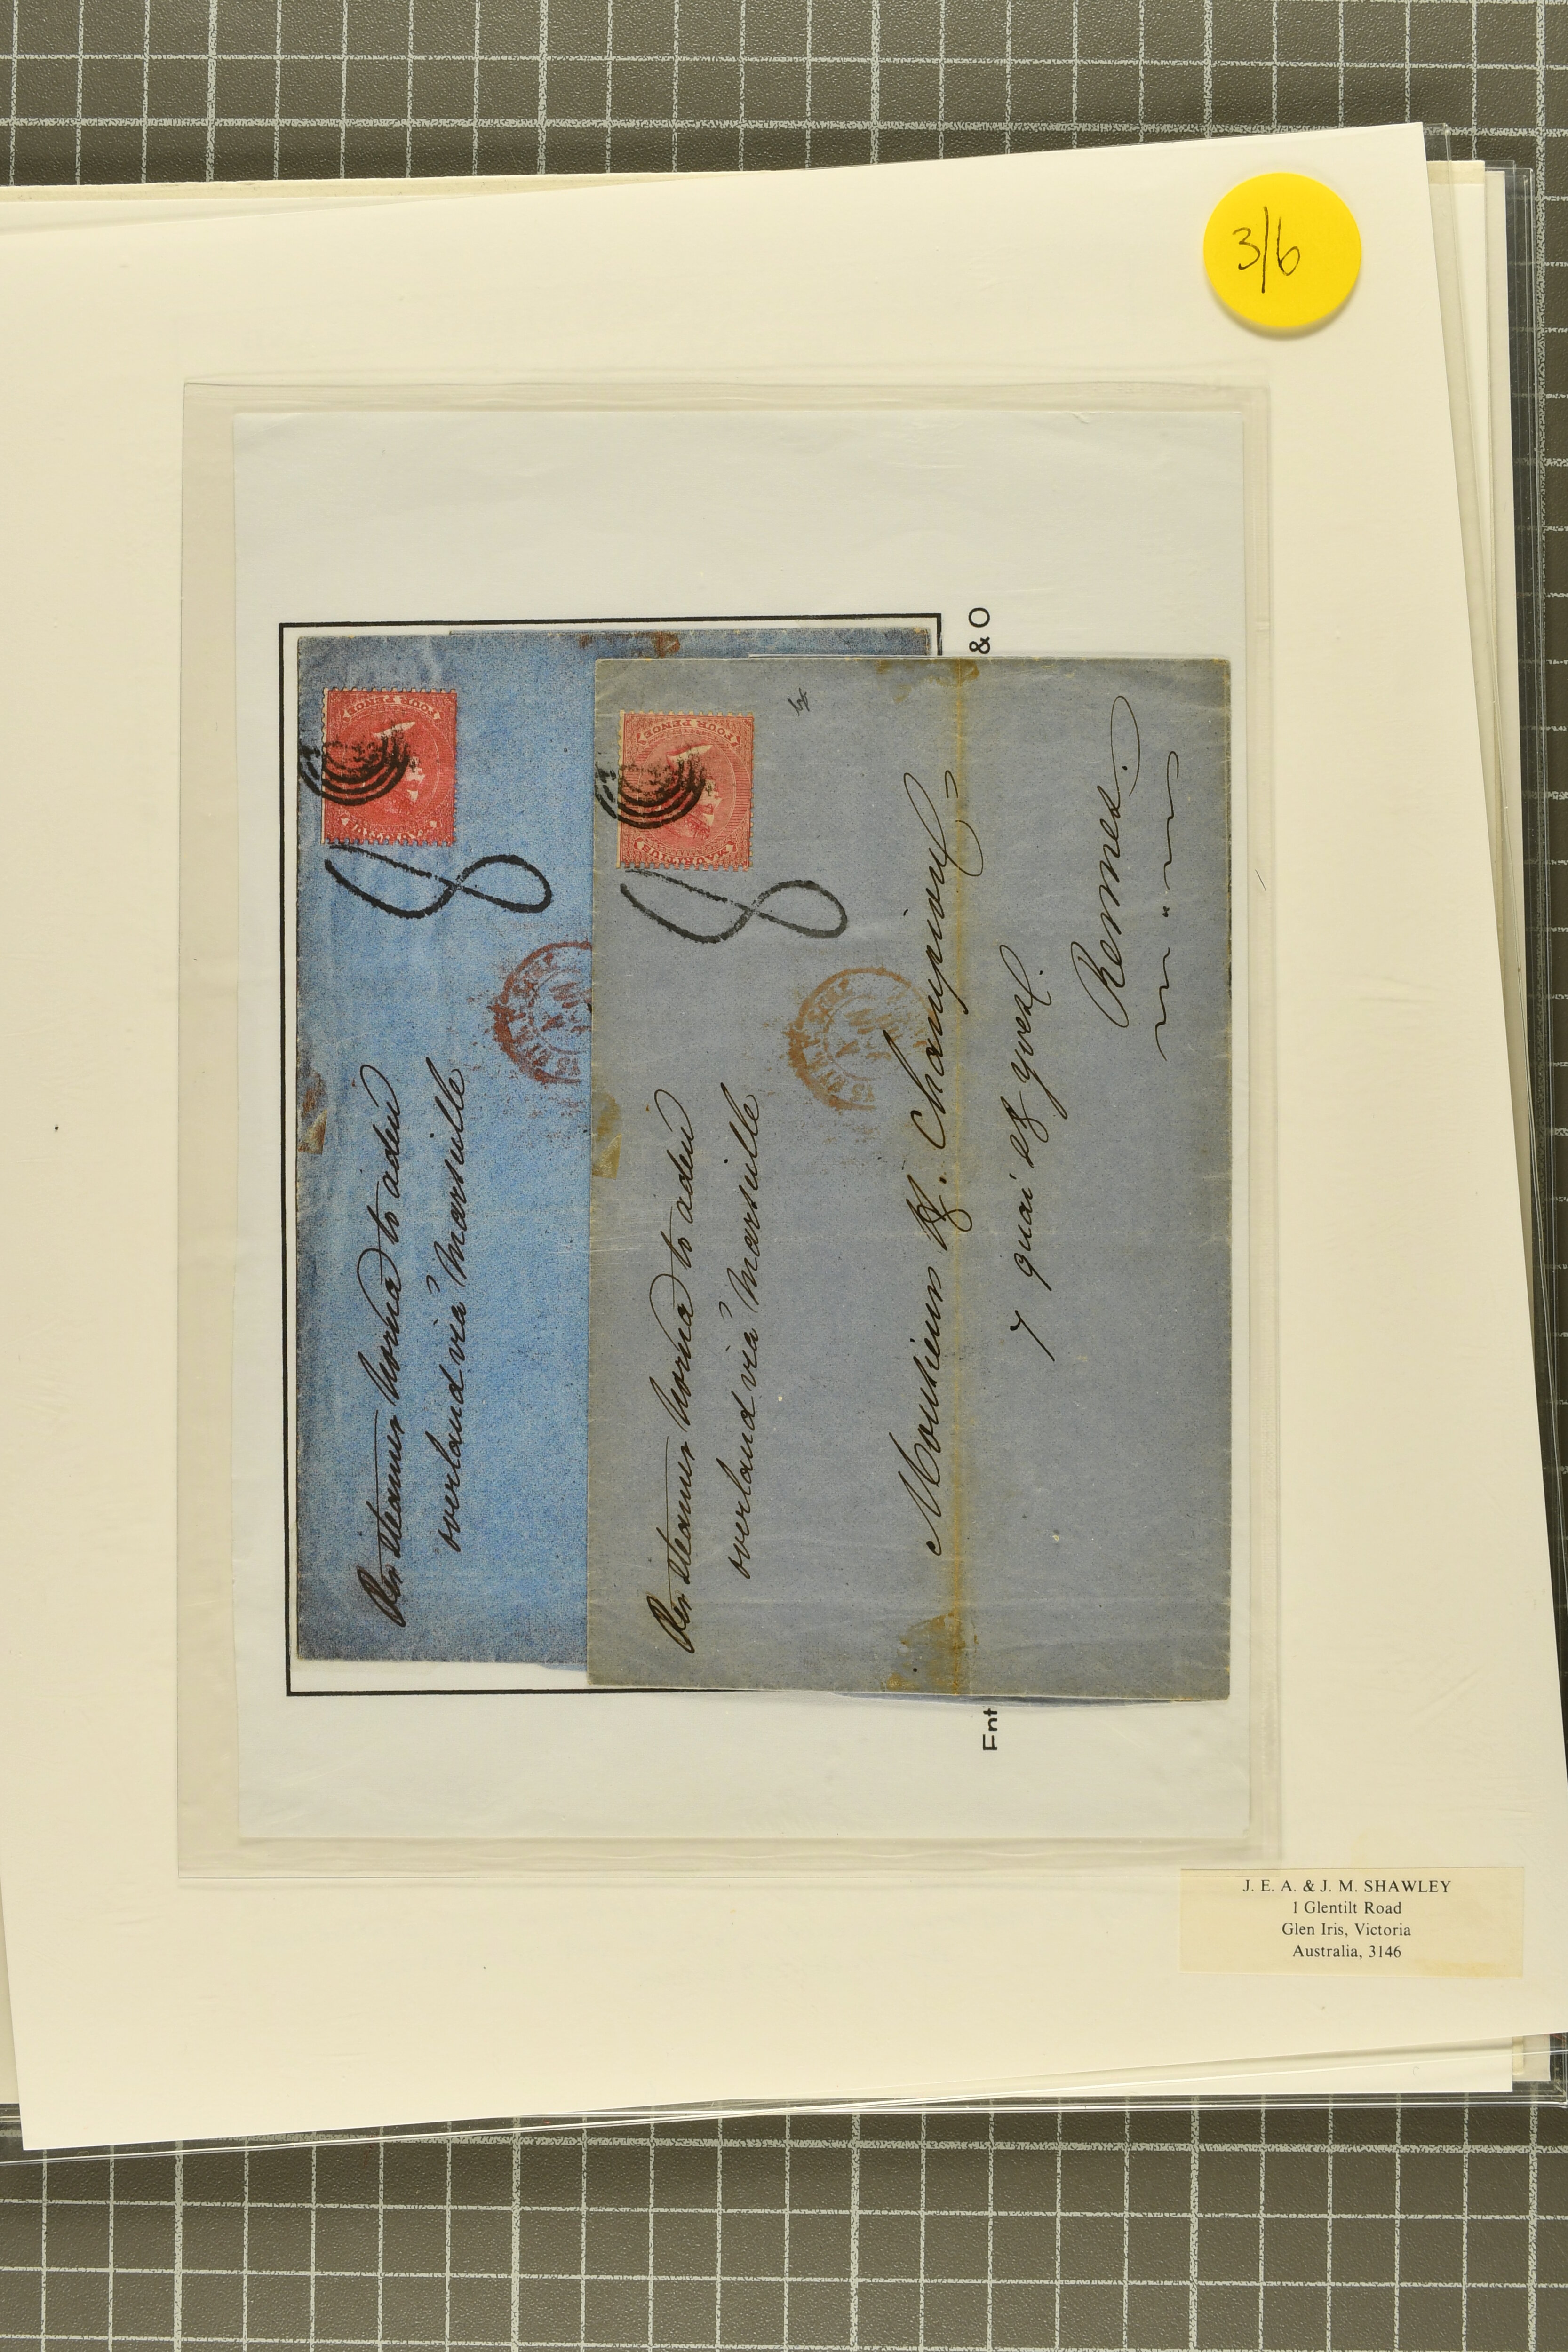 3/6
FOUR PENCE
MAURITIUS
8
Per Steamer Norna to aden
overland via Marseille
FOUR PENCE
MAURITIUS
8
Per Steamer Norna to aden
overland via Marseille
Monsieur H. Championl
7 quai st yvest.
Rennes.
& O
Ent
J. E. A. & J. M. SHAWLEY
1 Glentilt Road
Glen Iris, Victoria
Australia, 3146